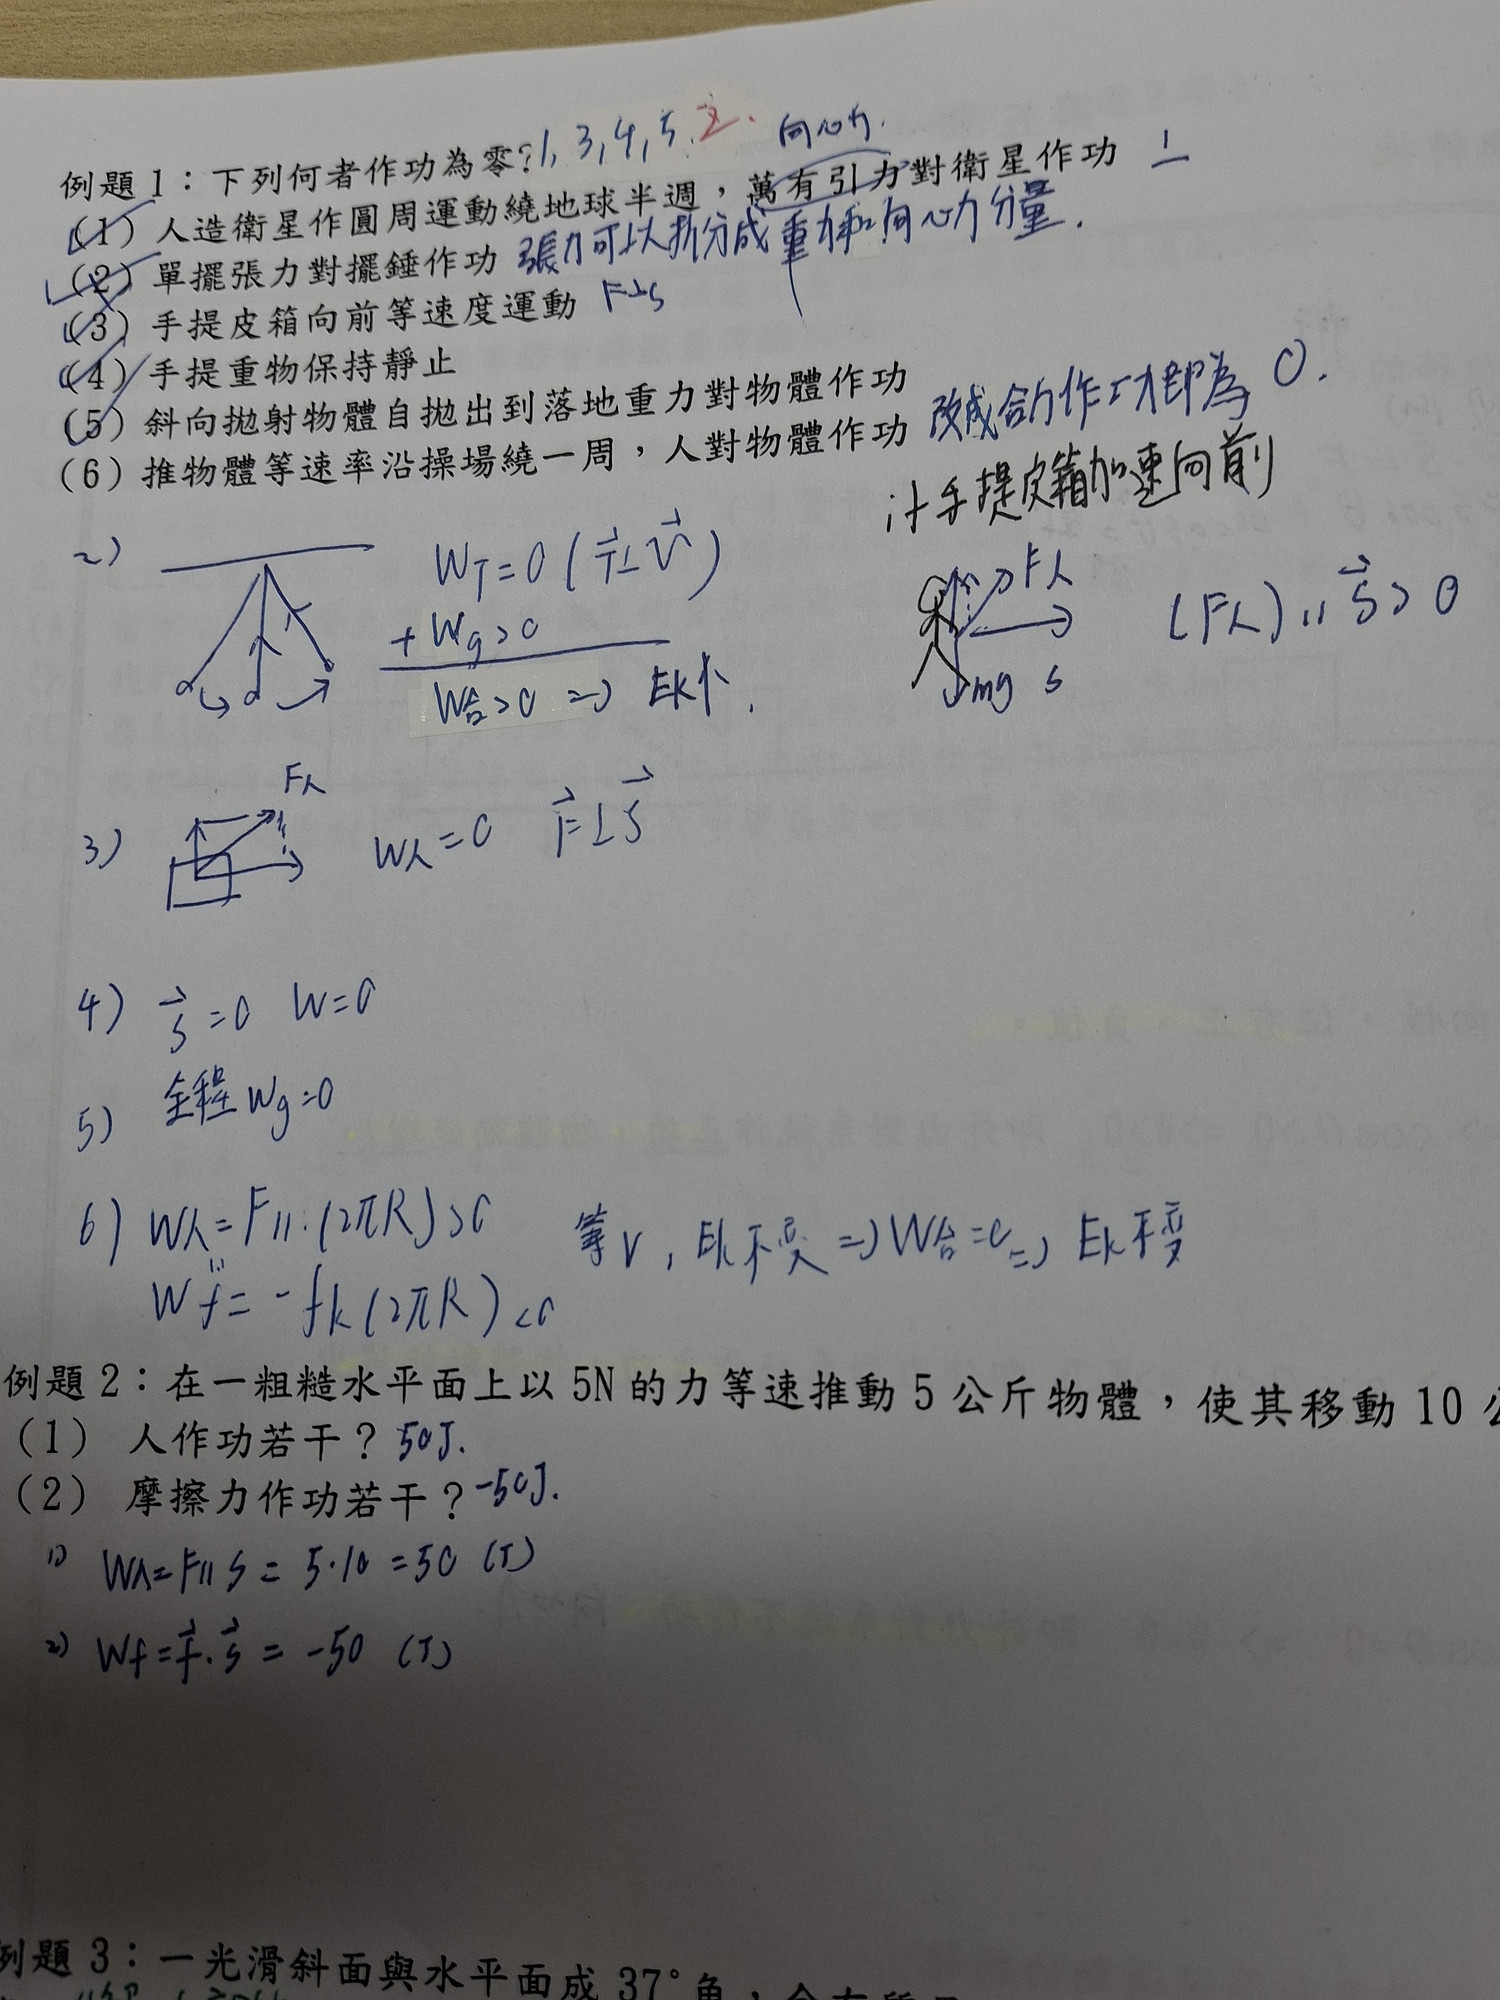 例題1：下列何者作功為零? 1, 3, 4, 5. 2.
向心力.
(1) 人造衛星作圓周運動繞地球半週，萬有引力對衛星作功 ⊥
(2) 單擺張力對擺錘作功 張力可以拆分成重力和向心力分量.
(3) 手提皮箱向前等速度運動 F⊥S
(4) 手提重物保持靜止
(5) 斜向拋射物體自拋出到落地重力對物體作功
(6) 推物體等速率沿操場繞一周，人對物體作功 改成合力作功即為 0.
手提皮箱加速向前
2) W_T=0 (T⃗⊥V⃗)
+ Wg>0
W合>0 => Ek↑.
F人
mg S
(F人)∥ S⃗>0
3) F人
W人=0 F⃗⊥S⃗
4) S⃗=0 W=0
5) 全程Wg=0
6) W人=F∥·(2πR)>0
Wf=-fk(2πR)<0
等V, Ek不變 => W合=0 => Ek不變
例題2：在一粗糙水平面上以5N的力等速推動5公斤物體，使其移動10
(1) 人作功若干？50J.
(2) 摩擦力作功若干？-50J.
1) W人=F∥S=5·10=50 (J)
2) Wf=f⃗·S⃗=-50 (J)
例題3：一光滑斜面與水平面成37°角，